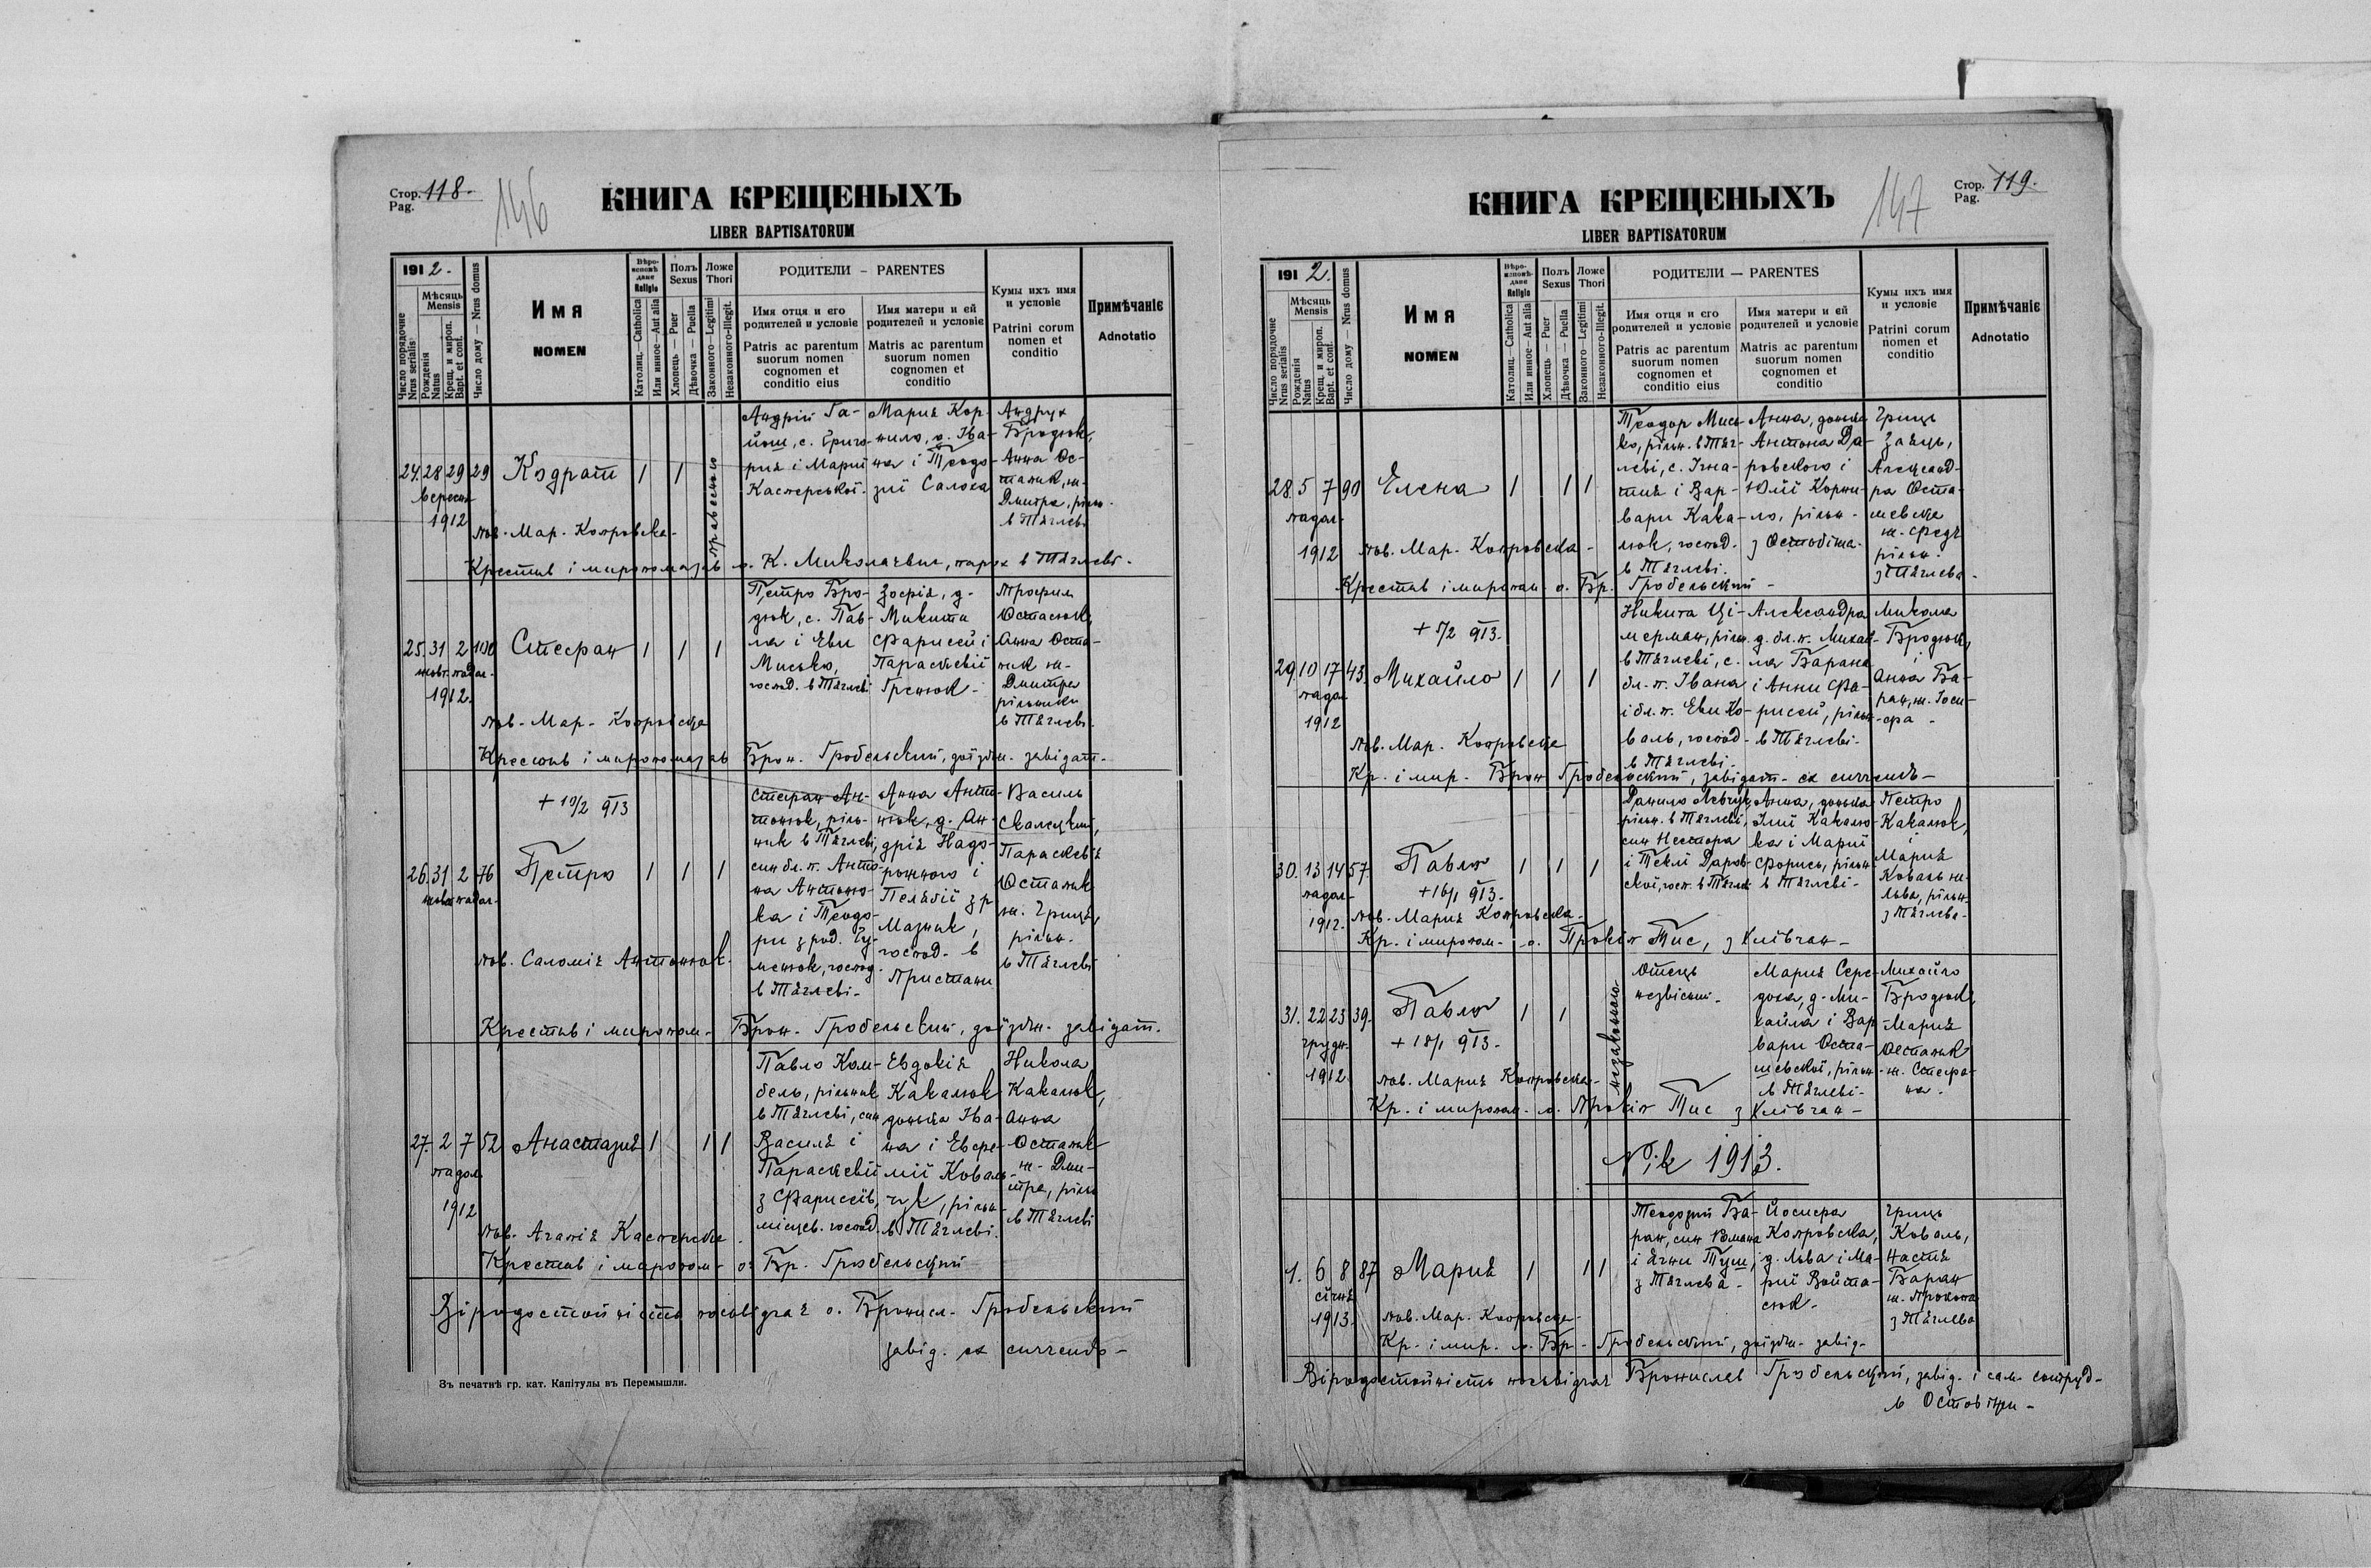 Стор. 118.
Pag.
146
КНИГА КРЕЩЕНЫХЪ
LIBER BAPTISATORUM
191 2.
Число порядочне
Nrus serialis
Мѣсяць
Mensis
Рожденія
Natus
Крещ. и мироп.
Bapt. et conf.
Число дому — Nrus domus
Имя
NOMEN
Вѣро-
исповѣ-
дане
Religio
Католиц.—Catholica
Или инное—Aut alia
Полъ
Sexus
Хлопець — Puer
Дѣвочка — Puella
Ложе
Thori
Законного—Legitimi
Незаконного—Illegit.
РОДИТЕЛИ — PARENTES
Имя отця и его
родителей и условіе
Patris ac parentum
suorum nomen
cognomen et
conditio eius
Имя матери и ей
родителей и условіе
Matris ac parentum
suorum nomen
cognomen et
conditio
Кумы ихъ имя
и условіе
Patrini eorum
nomen et
conditio
Примѣчаніє
Adnotatio
24. 28 29 29 Кодрат 1 1
вересня
1912
правесного
Андрій Га-
йош, с. Григо-
рия і Марії
Касперської.
Мария Кор-
нило, д. Іва-
на і Теодо-
зії Салоха
Андрух
Бродюк,
Анна Ос-
тапик, ж.
Дмитра, рільн.
в Тяглеві
пов. Мар. Копровска-
Крестив і миропомазав о. К. Миколаєвич, парох в Тяглеві.
25. 31 2 100 Стефан 1 1 1
жовт. падол.
1912.
Петро Бро-
дюк, с. Пав-
ла і Еви
Мисько,
господ. в Тяглеві
Зофія, д.
Микити
Фарисей і
Параскевії
Гренюк.
Трофим
Остасюк,
Анна Оста-
пик ж.
Дмитра
рільники
в Тяглеві.
пов. Мар. Копровска
Крестив і миропомазав Брон. Гробельский, доїздж. завідат.
+ 19/2 913
26. 31 2 76 Петро 1 1 1
жовт падол.
Стефан Ан-
тонюк, ріль-
ник в Тяглеві,
син бл. п. Анто-
на Антоню-
ка і Теодо-
ри з род. Гу-
менюк, господ.
в Тяглеві.
Анна Анто-
нюк, д. Ан-
дрія Надо-
рожного і
Пелагії з р
Мазник,
господ. в
Пристани
Василь
Скалецкий,
Параскевія
Остапик
ж. Гриця,
рільн.
в Тяглеві
пов. Саломія Антонюк.
Крестив і миропом. Брон. Гробельский, доїздж. завідат.
27. 2 7 52 Анастазия 1 1 1
падол.
1912
Павло Ком-
бель, рільник
в Тяглеві, син
Василя і
Параскевії
з Фарисеїв,
місцев. господ.
Евдокія
Какалюк
донька Іва-
на і Евфе-
мії Коваль-
чук, рільн.
в Тяглеві.
Никола
Какалюк,
Анна
Остапик
ж. Дми-
тра, рільн
в Тяглеві
пов. Агапія Касперска.
Крестив і миропом. о. Бр. Гробельский
Віродостойність посвідчає о. Бронисл. Гробельский
завід. ex currendo
Зъ печатнѣ гр. кат. Капітулы въ Перемышли.
Стор. 119.
Pag.
147
КНИГА КРЕЩЕНЫХЪ
LIBER BAPTISATORUM
191 2.
Число порядочне
Nrus serialis
Мѣсяць
Mensis
Рожденія
Natus
Крещ. и мироп.
Bapt. et conf.
Число дому — Nrus domus
Имя
NOMEN
Вѣро-
исповѣ-
дане
Religio
Католиц.—Catholica
Или инное—Aut alia
Полъ
Sexus
Хлопець — Puer
Дѣвочка — Puella
Ложе
Thori
Законного—Legitimi
Незаконного—Illegit.
РОДИТЕЛИ — PARENTES
Имя отця и его
родителей и условіе
Patris ac parentum
suorum nomen
cognomen et
conditio eius
Имя матери и ей
родителей и условіе
Matris ac parentum
suorum nomen
cognomen et
conditio
Кумы ихъ имя
и условіе
Patrini eorum
nomen et
conditio
Примѣчаніє
Adnotatio
28. 5 7 90 Елена 1 1 1
падол.
1912
Теодор Мись-
ко, рільн. в Тяг-
леві, с. Ігна-
тия і Вар-
вари Кака-
люк, господ.
в Тяглеві.
Анна, донька
Антона Да-
ровского і
Юлії Корни-
ло, рільн.
з Остобіжа.
Гриць
Заяць,
Александ-
ра Оста-
шевска
ж. Федя
рільн.
з Тяглева.
пов. Мар. Копровска
Крестив і миропом. о. Бр. Гробельский
+ 5/2 913.
29. 10 17 43. Михайло 1 1 1
падол.
1912
Никита Ці-
мерман, рільн.
в Тяглеві, с.
бл. п. Івана
і бл. п. Еви Ко-
валь, господ.
в Тяглеві.
Александра
д. бл. п. Михай-
ла Барана
і Анни Фа-
рисей, рільн.
в Тяглеві.
Микола
Бродюк,
і
Анна Ба-
ран, ж. Йоси-
фа
пов. Мар. Копровска
Кр. і мир. Брон Гробельский, завідат. ex currendo
30. 13 14 57. Павло 1 1 1
падол.
1912.
+ 16/1 913.
Данило Левчук,
рільн. в Тяглеві,
син Нестора
і Теклі Даров-
скої, госп. в Тяглеві
Анна, донька
Ілії Какалю-
ка і Марії
Форись, рільн.
в Тяглеві.
Петро
Какалюк,
і
Мария
Коваль ж.
Льва, рільн.
з Тяглева.
пов. Мария Копровска
Кр. і миропом. о. Прокіп Тис, з Хлівчан
31. 22 23 39. Павло 1 1
грудн.
1912
+ 18/1 913.
незаконного
Отець
незвісний.
Мария Сере-
доха, д. Ми-
хайла і Вар-
вари Оста-
шевскої, рільн.
в Тяглеві.
Михайло
Бродюк,
Мария
Остапик
ж. Стефа-
на.
пов. Мария Копровска
Кр. і миропом. о. Прокіп Тис з Хлівчан
Рік 1913.
1. 6 8 87 Мария 1 1 1
січня
1913.
Теодозий Ба-
ран, син Романа
і Ягни Туш,
з Тяглева.
Йосифа
Копровска,
д. Льва і Ма-
рії Войта-
сюк.
Гриць
Коваль,
Настя
Баран
ж. Прокопа
з Тяглева
пов. Мар. Копровска
Кр. і мир. о. Бр. Гробельский, доїздж. завід.
Віродостойність посвідчає Бронислав Гробельский, завід. і сам. сотруд.
в Остобіжи